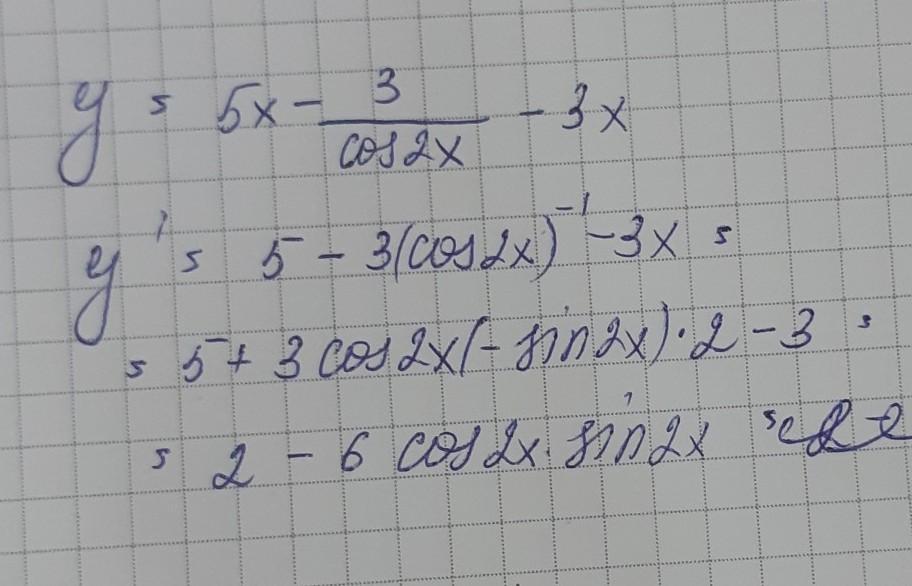 y = 5x - 3/cos2x - 3x
y' = 5 - 3(cos2x)^-1 - 3x =
= 5 + 3cos2x(-sin2x)·2 - 3 =
= 2 - 6 cos2x · sin2x =